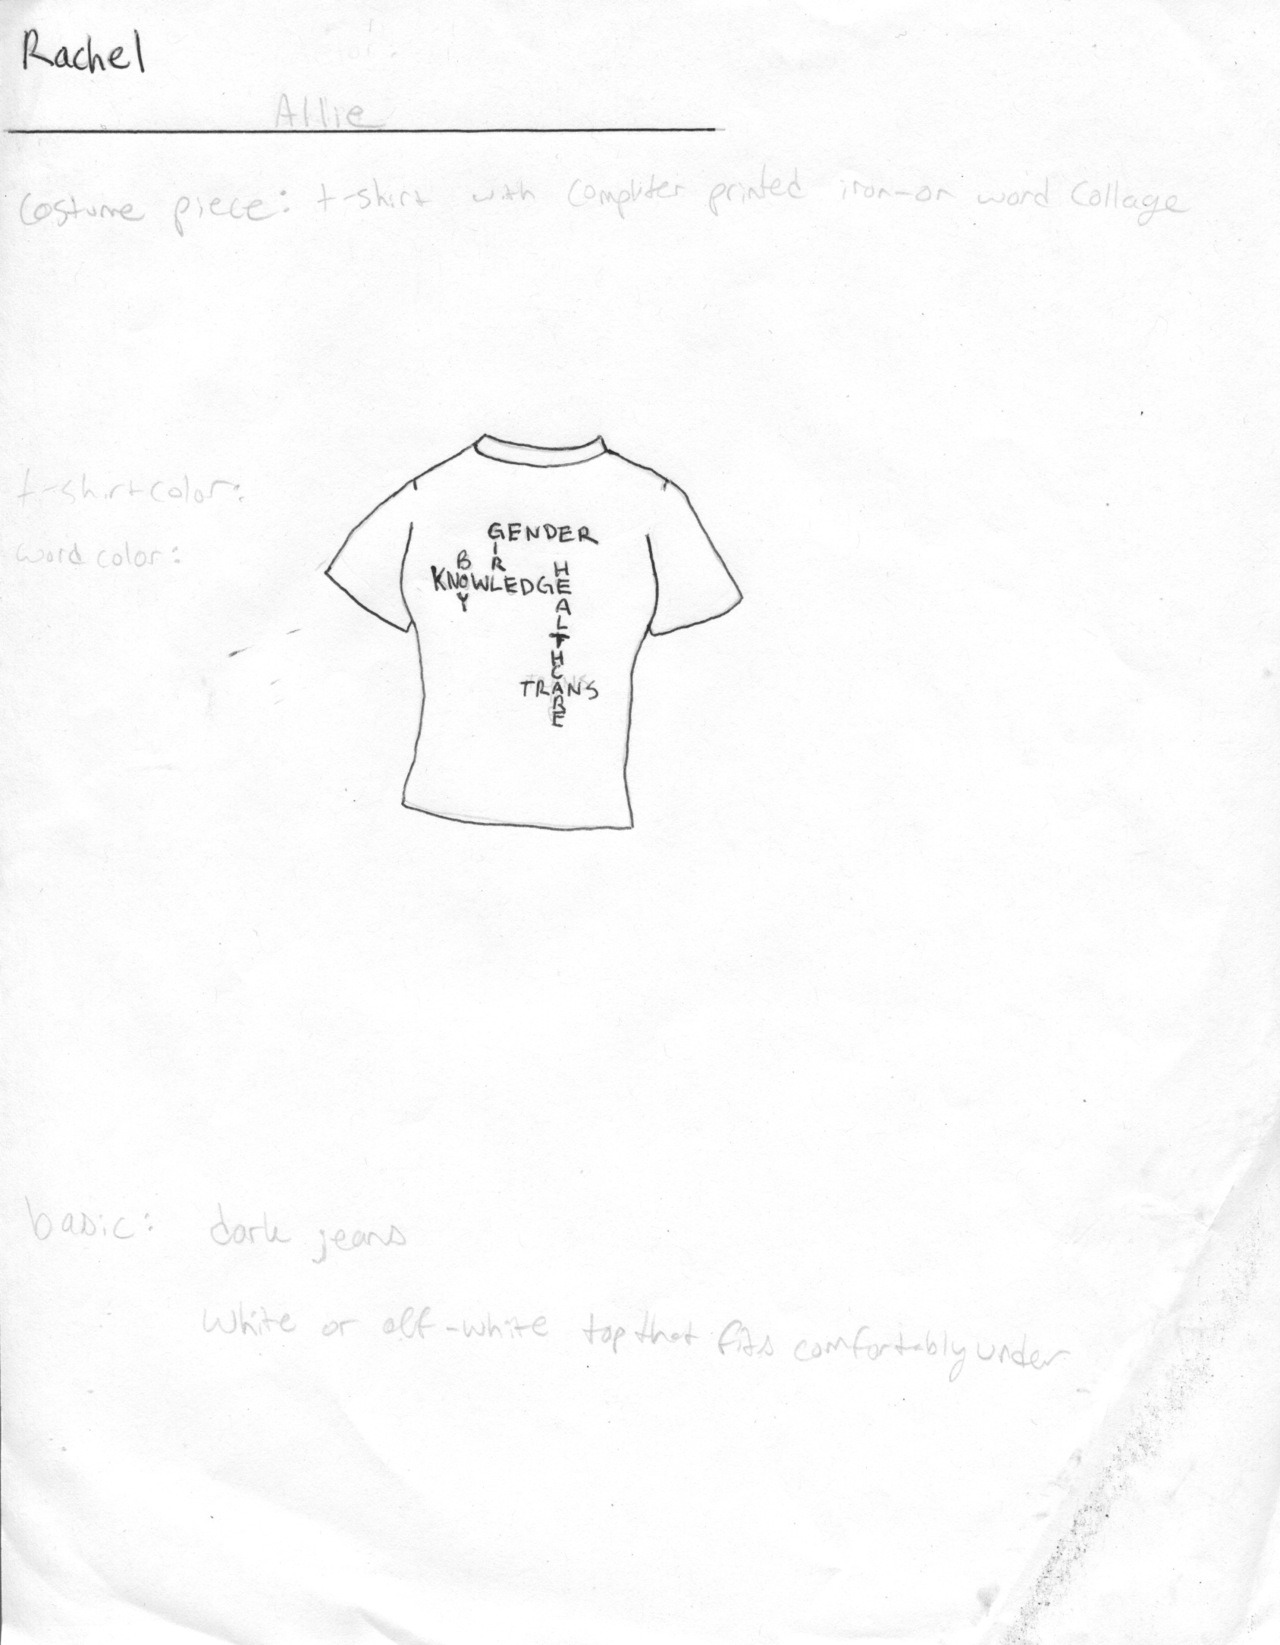 Rachel
Allie
Costume piece: t-shirt with computer printed iron-on word collage
t-shirt color:
word color:
GENDER
GIRL
BOY
KNOWLEDGE
HEALTHCARE
TRANS
basic: dark jeans
white or off-white top that fits comfortably under